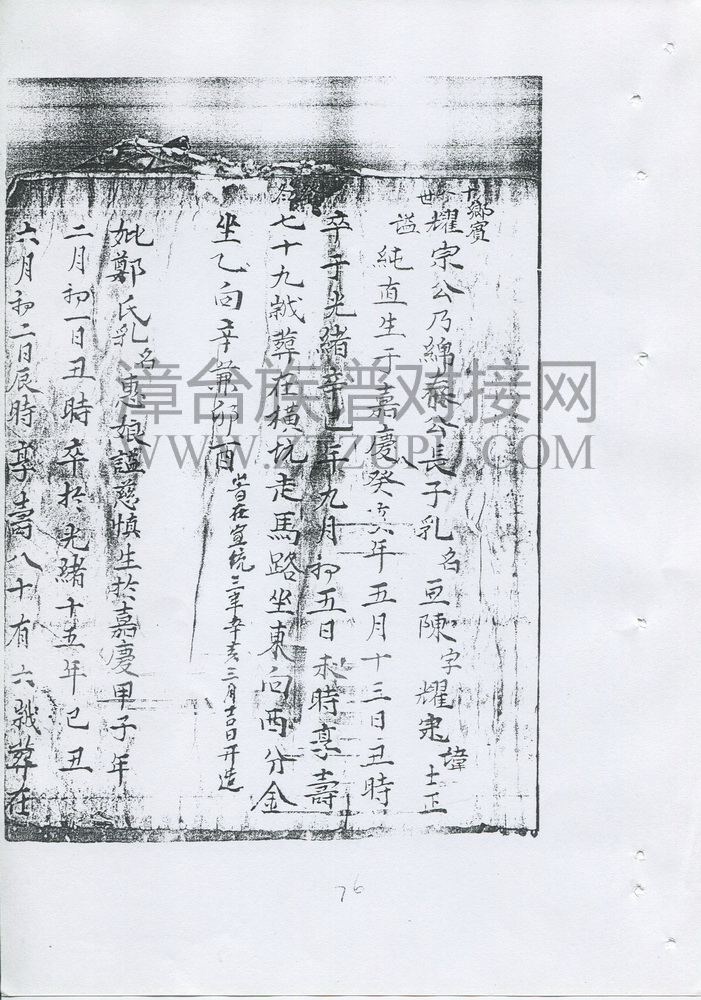 鄉賓
世耀宗公乃綿蘇公長子乳名亘陳字耀宗諱士正
謚純直生于嘉慶癸亥年五月十三日丑時
卒于光緒辛巳年九月初五日未時享壽
七十九歲葬在橫坑走馬路坐東向西分金
坐乙向辛兼卯酉
皆在宣統三年辛亥三月吉日開造
妣鄭氏乳名惠娘謚慈慎生於嘉慶甲子年
二月初一日丑時卒於光緒十五年己丑
六月初二日辰時享壽八十有六歲葬在
漳台族谱对接网
WWW.ZTZUPU.COM
76